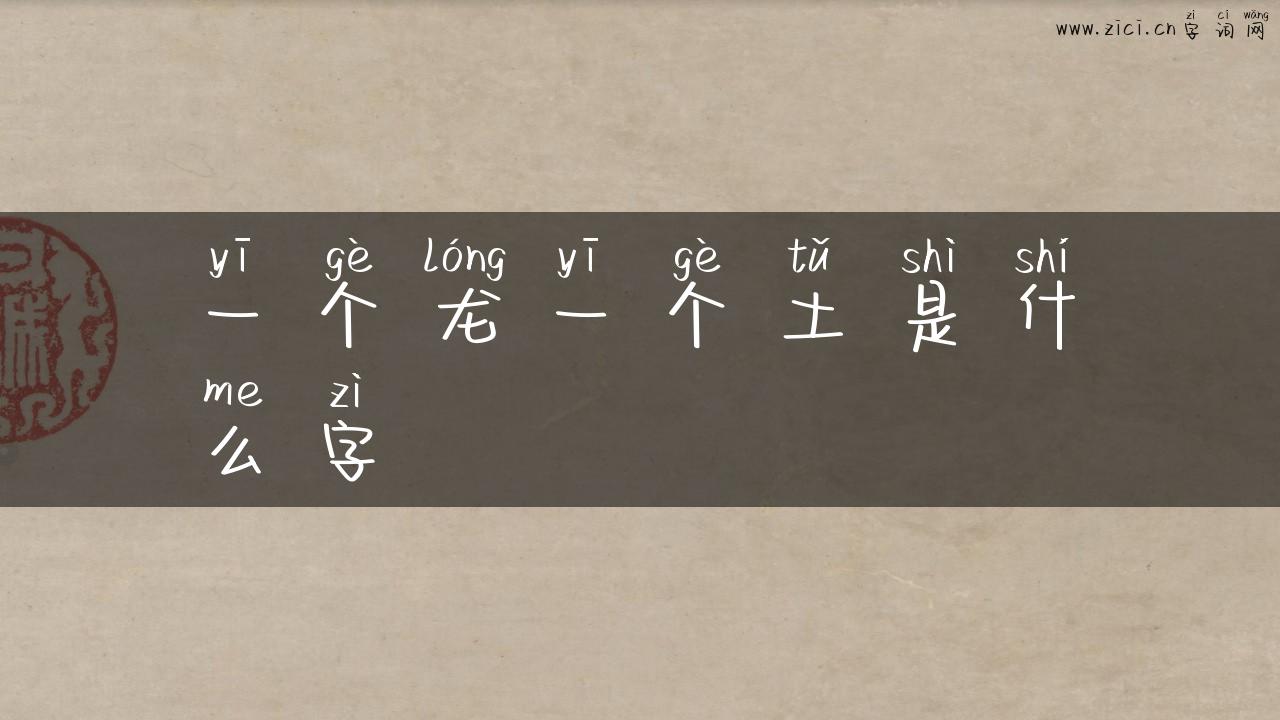 zì cí wǎng
www.zici.cn 字词网
yī gè lóng yī gè tǔ shì shí
一个龙一个土是什
me zì
么字